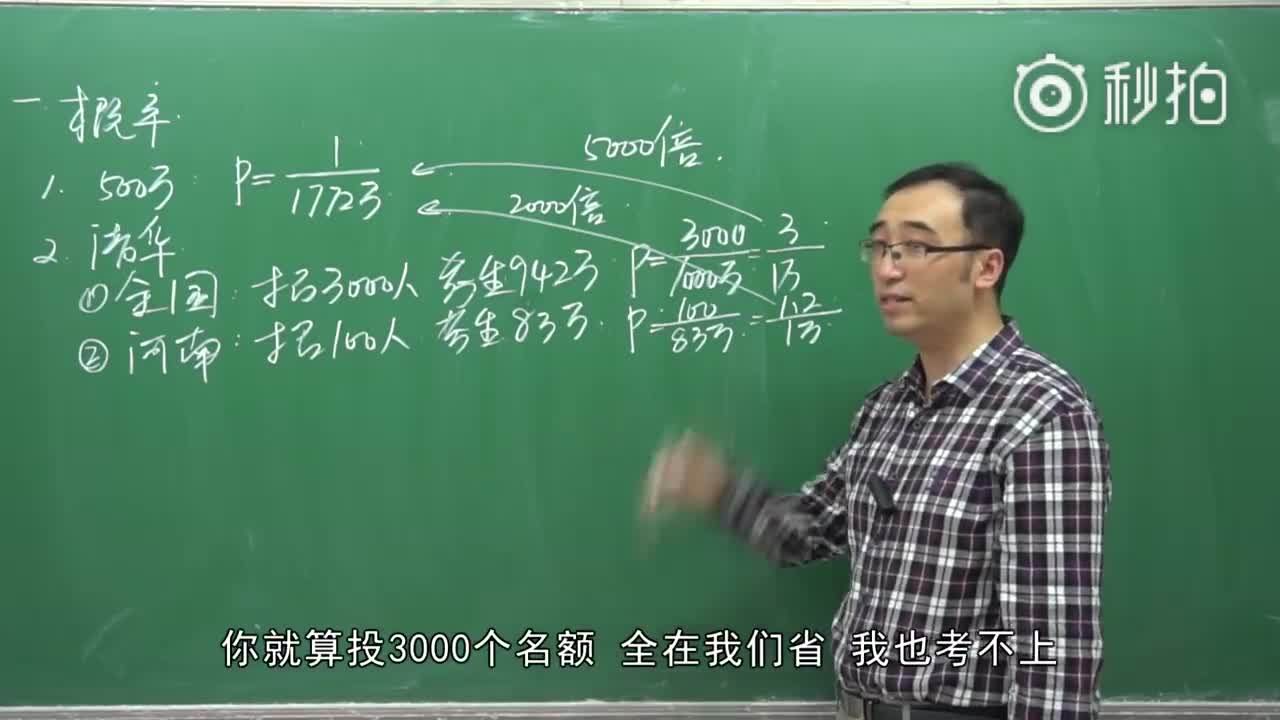 秒拍
一 概率
1. 500万: P=1/1772万
5000倍.
2000倍.
2. 清华
① 全国: 招3000人 考生942万. P=3000/1000万=3/1万
② 河南: 招100人 考生83万. P=100/83万=1.2/1万
你就算投3000个名额 全在我们省 我也考不上